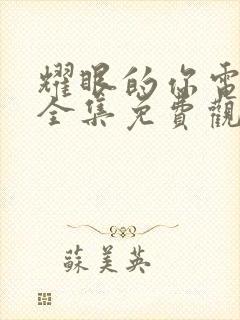 耀眼的你電
全集免費觀
蘇美英